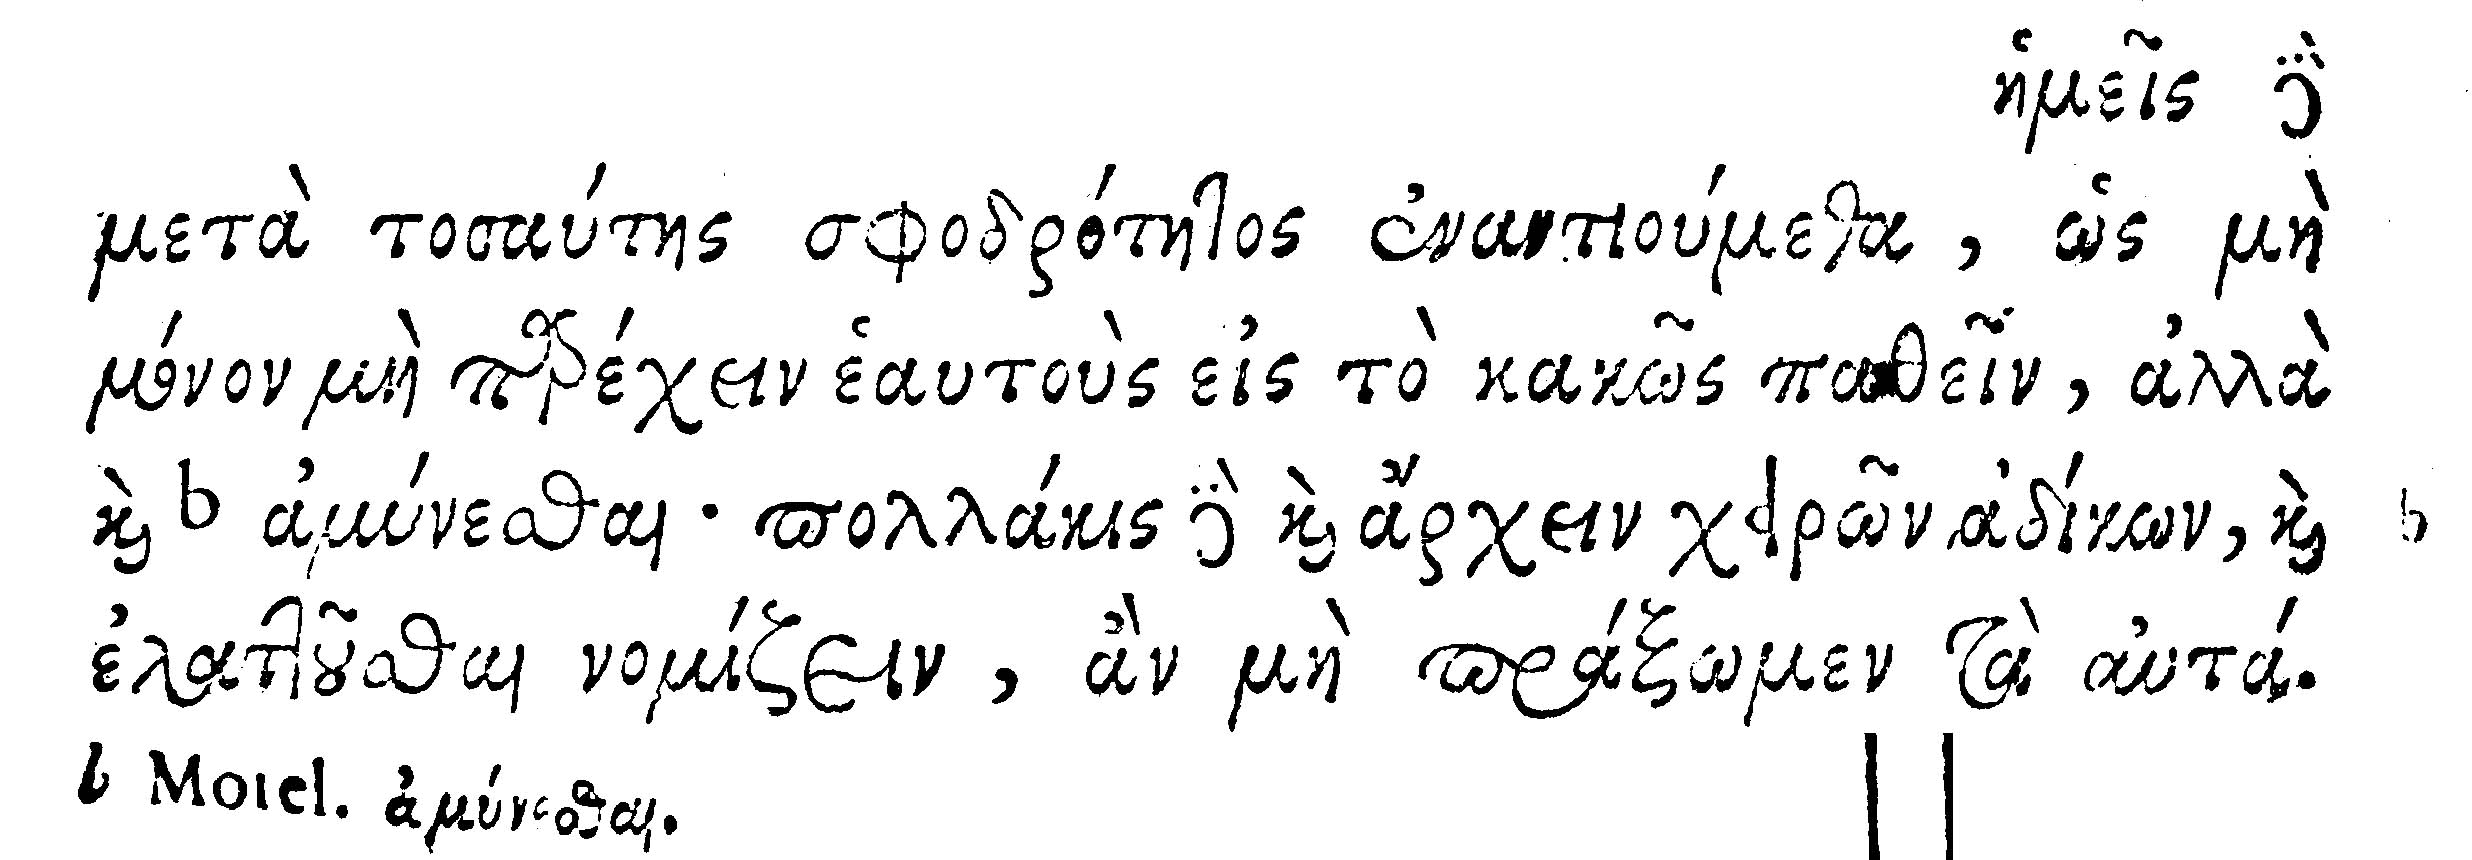 ἡμεῖς δὲ
μετὰ τοσαύτης σφοδρότητος ἐναντιούμεθα, ὡς μὴ
μόνον μὴ παρέχειν ἑαυτοὺς εἰς τὸ κακῶς παθεῖν, ἀλλὰ
καὶ b ἀμύνεσθαι· πολλάκις δὲ καὶ ἄρχειν χειρῶν ἀδίκων, καὶ b
ἐλαττοῦσθαι νομίζειν, ἂν μὴ πράξωμεν τὰ αὐτά.
b Morel. ἀμύνεσθαι.